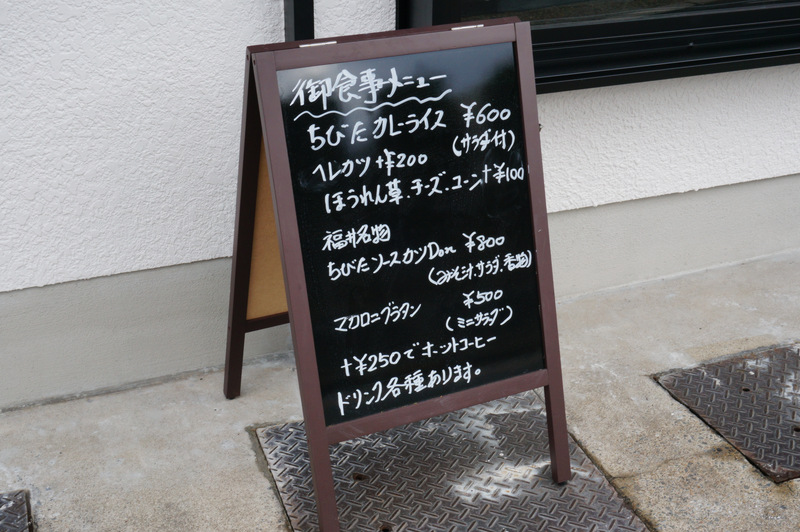 御食事メニュー
ちびたカレーライス ¥600
(サラダ付)
ヘレカツ +¥200
ほうれん草.チーズ.コーン +¥100
福井名物
ちびたソースカツDon ¥800
(みそ汁.サラダ.香物)
マカロニグラタン ¥500
(ミニサラダ)
+¥250でホットコーヒー
ドリンク各種あります。